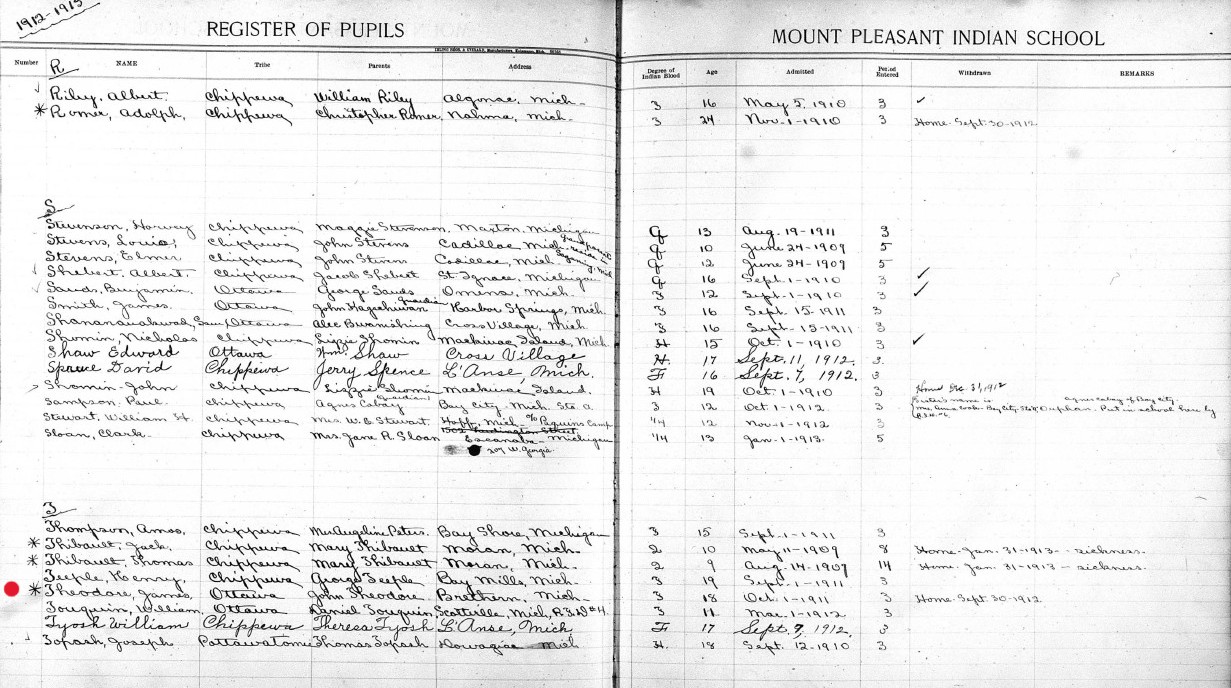 1912-1913
REGISTER OF PUPILS MOUNT PLEASANT INDIAN SCHOOL
Number NAME Tribe Parents Address Degree of Indian Blood Age Admitted Period Entered Withdrawn REMARKS
R
✓ Riley, Albert. Chippewa William Riley Algonac, Mich- 3 16 May 5, 1910 3 ✓
* Romer, Adolph, Chippewa Christopher Romer, Nahma, Mich- 3 24 Nov-1-1910 3 Home-Sept-30-1912
S
Stevenson, Harvey Chippewa Maggie Stevenson, Maxton, Michigan 13 Aug-19-1911 3
Stevens, Louis, Chippewa John Stevens Cadillac Mich- 10 June 24-1909 5
Stevens, Elmer Chippewa John Stevens Cadillac, Mich. 12 June 24-1909 5
✓ Shebert, Albert. Chippewa Jacob Shebert St Ignace, Michigan 16 Sept-1-1910 3 ✓
✓ Sands, Benjamin. Ottawa George Sands Omena, Mich. 3 12 Sept-1-1910 3 ✓
Smith, James. Ottawa John guardian Harbor Springs, Mich 3 16 Sept-15-1911 3
Sam, Ottawa Alec Cross Village, Mich 3 16 Sept-15-1911 3
Shomin, Nicholas Chippewa Lizzie Shomin Mackinac Island, Mich. H 15 Oct-1-1910 3 ✓
Shaw Edward Ottawa Wm. Shaw Cross Village H 17 Sept. 11, 1912. 3
David Chippewa Jerry Spence L'Anse, Mich. F 16 Sept. 7, 1912. 3
Shomin-John Chippewa Lizzie Shomin Mackinac Island. H 19 Oct-1-1910 3 Home Dec. 31, 1912
Sampson, Paul. Chippewa Agnes Cabay guardian Bay City, Mich. Sta a 3 12 Oct-1-1912 3 Sister's name is Agnes Cabay of Bay City.
Orphan. Put in school here by
Stewart, William H. Chippewa Mrs. W. E. Stewart. Mich- 1/4 12 Nov-1-1912 3
Sloan, Clark. Chippewa Mrs. Jane R. Sloan Escanaba- Michigan 1/4 13 Jan-1-1913. 5
207 W. Georgia
T
Thompson, Amos, Chippewa Mrs Angeline Peters. Bay Shore, Michigan 3 15 Sept-1-1911 3
* Thibault, Jack, Chippewa Mary Thibault Moran, Mich- 2 10 May 11-1909 8 Home-Jan. 31-1913- sickness.
* Thibault, Thomas Chippewa Mary Thibault Moran, Mich- 2 9 Aug-14-1907 14 Home-Jan. 31-1913- sickness.
Teeple, Henry, Chippewa George Teeple Bay Mills, Mich- 3 19 Sept-1-1911 3
* Theodore, James, Ottawa John Theodore. Brethern, Mich- 3 18 Oct-1-1911 3 Home-Sept-30-1912
Touquin, William, Ottawa Daniel Touquin, Scottville, Mich, R.F.D #4. 3 11 Mar-1-1912 3
Tyosh William Chippewa Theresa Tyosh L'Anse, Mich F 17 Sept. 9, 1912. 3
✓ Topash, Joseph Pattawatomie Thomas Topash Dowagiac Mich H. 18 Sept. 12-1910 3